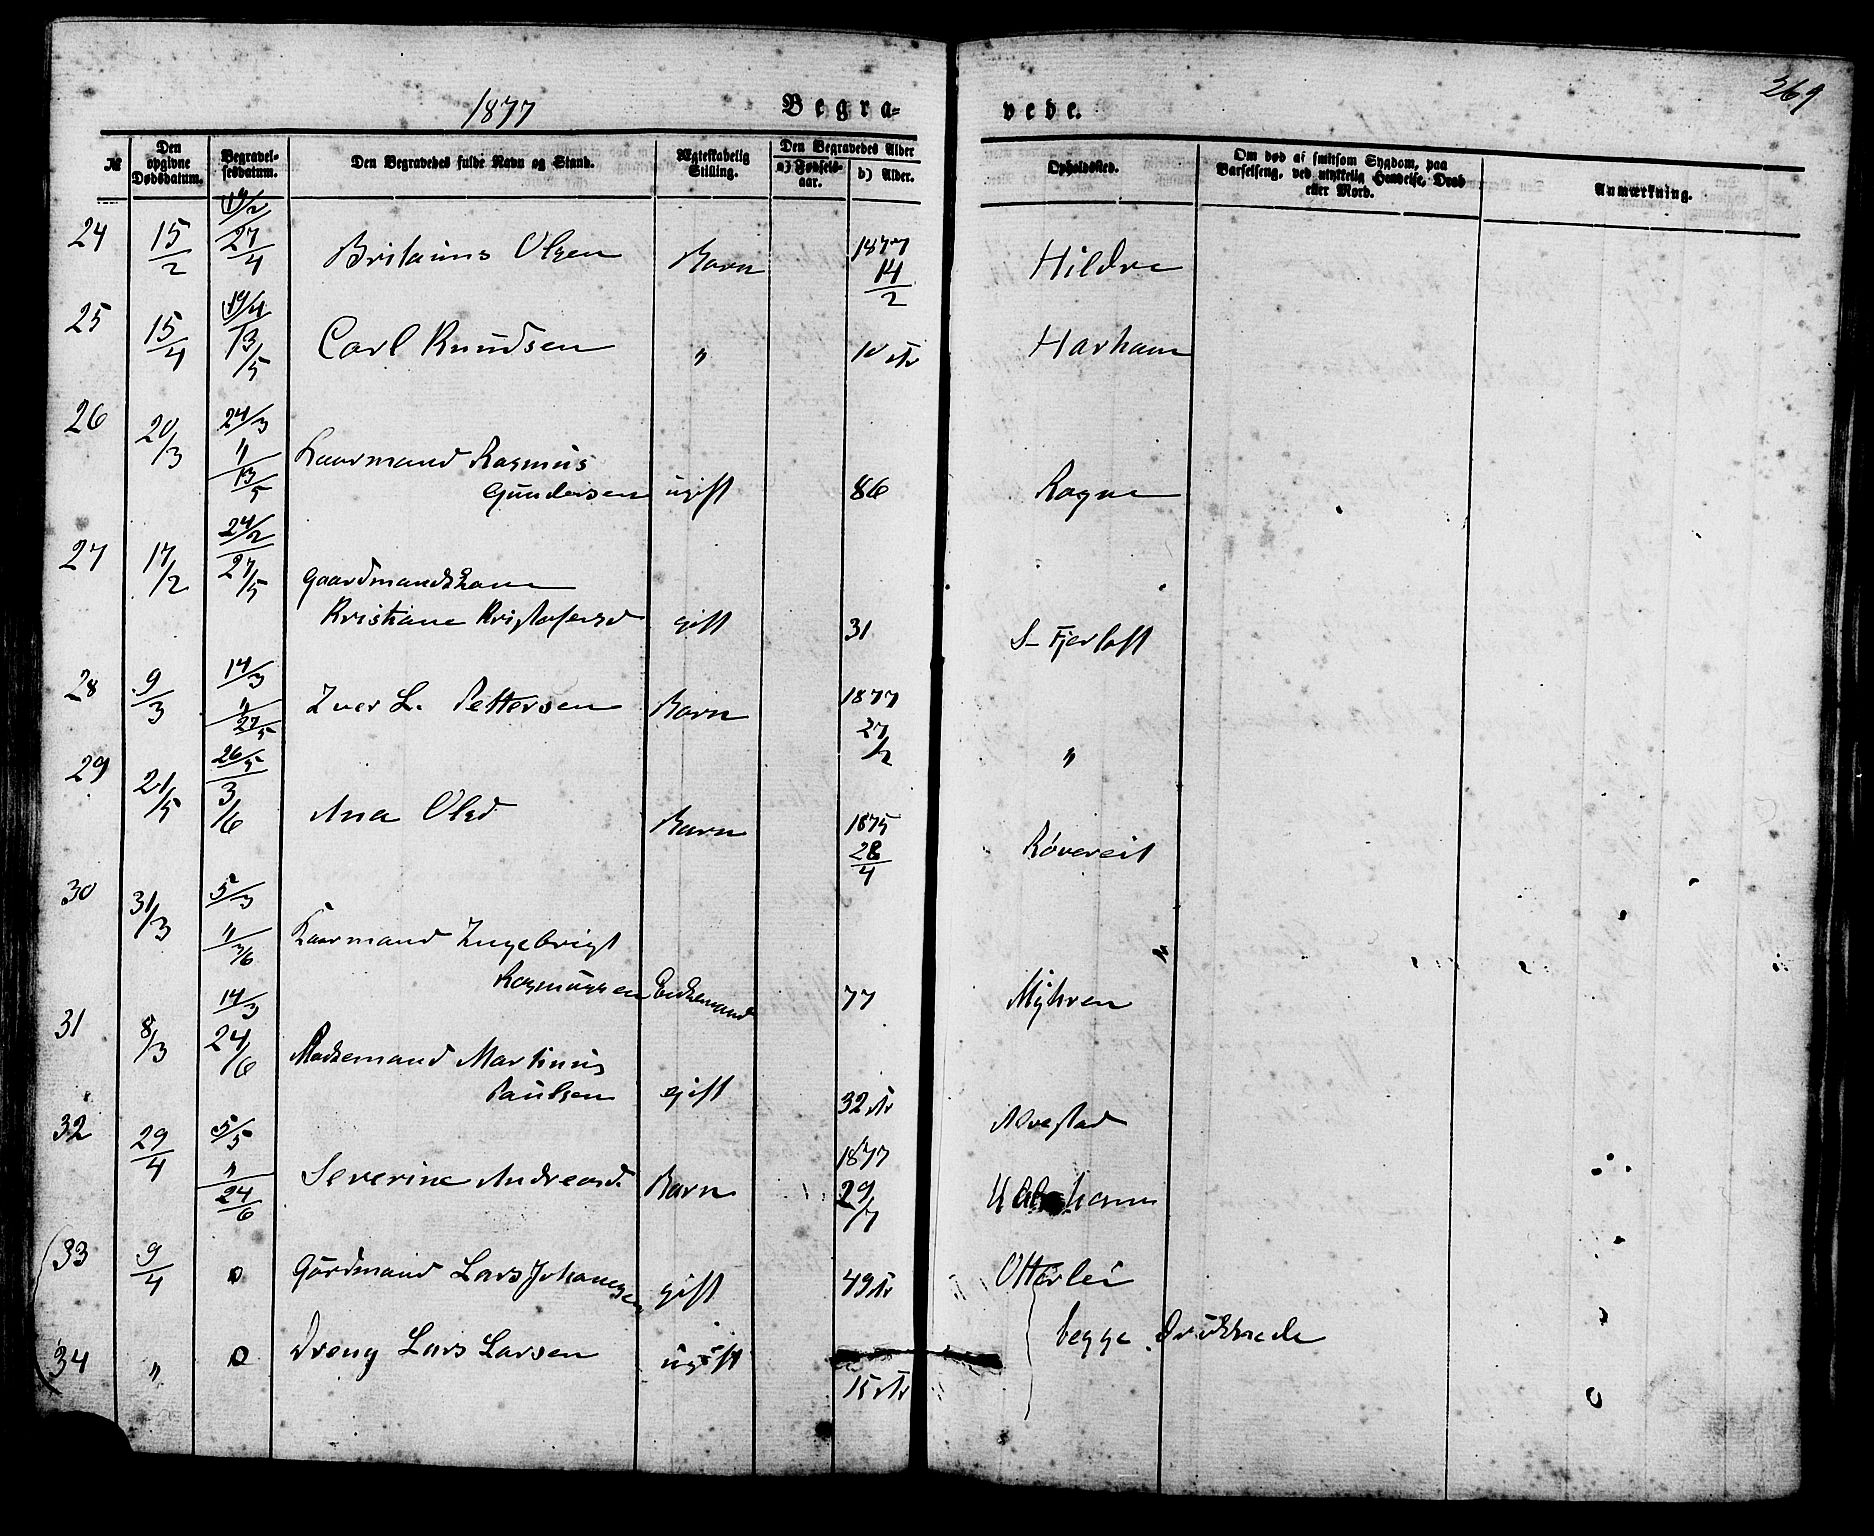 1877 Begra-
vede. 269
№ Den opgivne Dødsdatum. Begravelsesdatum. Den Begravedes fulde Navn og Stand. Ægteskabelig Stilling. Den Begravedes Alder a) Fødselsaar. b) Alder. Opholdssted. Om død af smitsom Sygdom, paa Barselseng, ved ulykkelig Hendelse, Drab eller Mord. Anmærkning.
24 15/2 27/4 Olsen Barn 1877 14/2 Hildre
25 15/4 13/5 Carl Knudsen " 10 Harham
26 20/3 24/3 " 13/5 Kaarmand Rasmus
Gundersen ugift 86 Rogne
27 17/2 24/2 27/5 Gaardmandskone
Kristiane Kristofersd gift 31 S- Fjerloft
28 9/3 14/3 " 27/5 Iver L. Pettersen Barn 1877 27/2 "
29 21/5 26/5 3/6 Ana Olsd Barn 1875 28/4 Røvereit
30 31/3 5/3 " 3/6 Kaarmand Ingebrigt
Rasmussen Enkemand 77 Myhren
31 8/3 14/3 24/6 Martinus
Paulsen gift 32
32 29/4 5/5 " 24/6 Severine Andreasd. Barn 1877 29/7
33 9/4 o Gårdmand Lars Johannesen gift 49 Otterlei
begge Druknede
34 " o Dreng Lars Larsen ugift 15